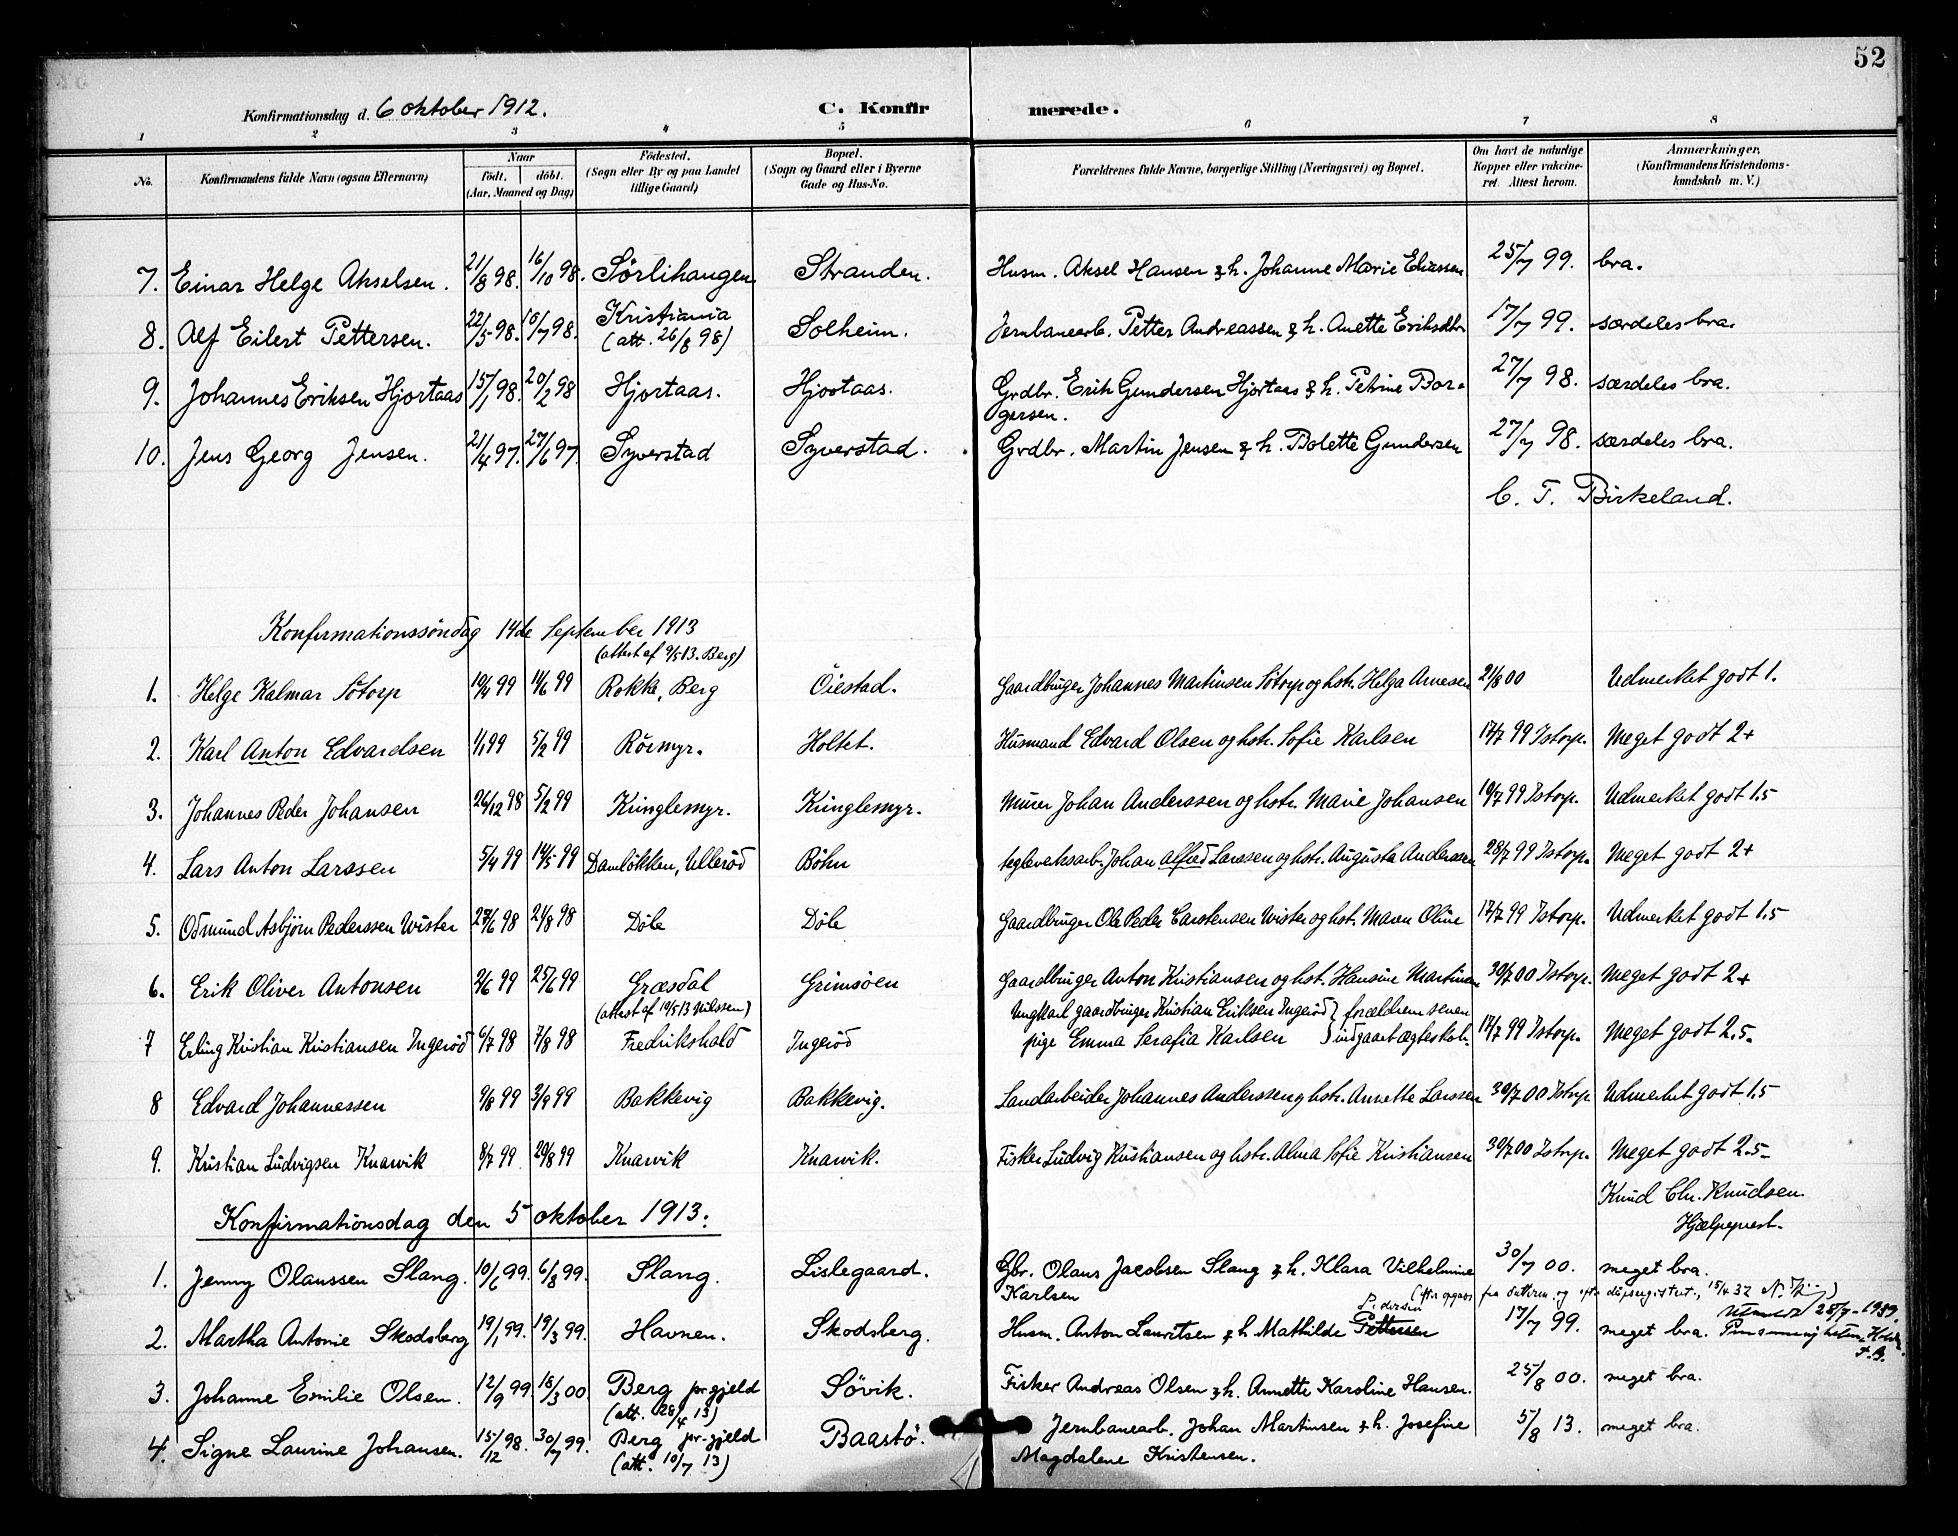 52
Konfirmationsdag d. 6 oktober 1912. C. Konfirmerede.
1 2 3 4 5 6 7 8
No. Konfirmandens fulde Navn (ogsaa Efternavn) Naar födt. döbt. (Aar, Maaned og Dag) Födested. (Sogn eller By og paa Landet tillige Gaard) Bopæl. (Sogn og Gaard eller i Byerne Gade og Hus-No. Forældrenes fulde Navne, borgerlige Stilling (Næringsvei) og Bopæl. Om havt de naturlige Kopper eller vakcineret. Attest herom. Anmærkninger, (Konfirmandens Kristendomskundskab m. V.)
7. Einar Helge Akselsen. 21/8 98. 16/10 98. Sörlihaugen Stranden. Husm. Aksel Hansen & h. Johanne Marie Eliassen 25/7 99. bra.
8. Alf Eilert Pettersen. 22/5 98. 10/7 98. Kristiania (att. 26/8 98) Solheim. Jernbanearb. Petter Andreassen & h. Anette Eriksdtr 17/7 99. særdeles bra.
9. Johannes Eriksen Hjortaas 15/1 98. 20/2 98 Hjortaas. Hjortaas. Grdbr. Erik Gundersen Hjortaas & h. Petrine Bor-
gersen. 27/7 98. særdeles bra.
10. Jens Georg Jensen. 21/4 97. 27/6 97. Syverstad Syverstad. Grdbr. Martin Jensen & h. Bolette Gundersen 27/7 98. særdeles bra.
C. F. Birkeland.
Konfirmationssöndag 14de September 1913
(attest af 9/5 13. Berg)
1. Helge Kalmar Sötorp 10/4 99 11/6 99 Rokke, Berg Öiestad. Gaardbruger Johannes Martinsen Sötorp og hstr. Helga Arnesen 21/8 00 Udmerket godt 1.
2. Karl Anton Edvardsen 1/1 99 5/2 99 Rörmyr. Holtet. Husmand Edvard Olsen og hstr. Sofie Karlsen 17/7 99 Istorp. Meget godt 2+
3. Johannes Peder Johansen 26/12 98 5/2 99 Kringlemyr. Kringlemyr. Murer Johan Anderssen og hstr. Marie Johansen 19/7 99 Istorp. Udmerket godt 1.5
4. Lars Anton Larssen 5/4 99 14/5 99 Damlökken, Ulleröd Böhn teglverksarb. Johan Alfred Larssen og hstr. Augusta Anderssen 28/7 99 Istorp. Meget godt 2+
5. Odmund Asbjörn Pederssen Wister 27/6 98 21/8 98 Döle Döle Gaardbruger Ole Peder Carstensen Wister og hst. Maren Oline 17/7 99 Istorp. Udmerket godt 1.5
6. Erik Oliver Antonsen 2/6 99 25/6 99 Græsdal Grimsöen Gaardbruger Anton Kristiansen og hst. Hansine Martinsen 30/7 00 Istorp. Meget godt 2+
(attest af 19/5 13 Nilssen) Ungkarl gaardbruger Kristian Eriksen Ingeröd } forældrene senere
7 Erling Kristian Kristiansen Ingeröd 6/7 98 7/8 98 Fredrikshald Ingeröd pige Emma Serafia Karlsen } indgaat ægteskab. 17/7 99 Istorp. Meget godt 2.5.
8 Edvard Johannessen 9/8 99 3/9 99 Bakkevig Bakkevig. Landarbeider Johannes Anderssen og hstr. Annette Larssen 30/7 00 Istorp Udmerket godt 1.5
9. Kristian Ludvigsen Knarvik 8/7 99 20/8 99 Knarvik Knarvik. Fisker Ludvig Kristiansen og hstr. Alma Sofie Kristiansen 30/7 00 Istorp. Meget godt 2.5-
Knud Chr. Knudsen.
Hjælpeprest.
Konfirmationsdag den 5 oktober 1913.
1. Jenny Olaussen Slang. 10/6 99. 6/8 99. Slang. Lislegaard. Gbr. Olaus Jacobsen Slang & h. Klara Vilhelmine
Karlsen 30/7 00. meget bra.
(efter opgave fra datteren og efter dåpsregistret, 15/4 32
2. Martha Antonie Skodsberg 19/1 99. 19/3 99. Havnen. Skodsberg. Husm. Anton Lauritsen & h Mathilde Pettersen Pedersen 17/7 99. meget bra. Utmeldt 28/7-1939.
3. Johanne Emilie Olsen. 12/9 99. 18/3 00. Berg pr.gjeld (att. 28/4 13) Sövik. Fisker Andreas Olsen & h. Annette Karoline Hansen. 25/8 00. meget bra.
4. Signe Laurine Johansen. 15/12 98. 30/7 99. Berg pr.gjeld (att. 10/7 13) Baastö. Jernbanearb. Johan Martinsen & h. Josefine
Magdalene Kristensen. 5/8 13. meget bra.